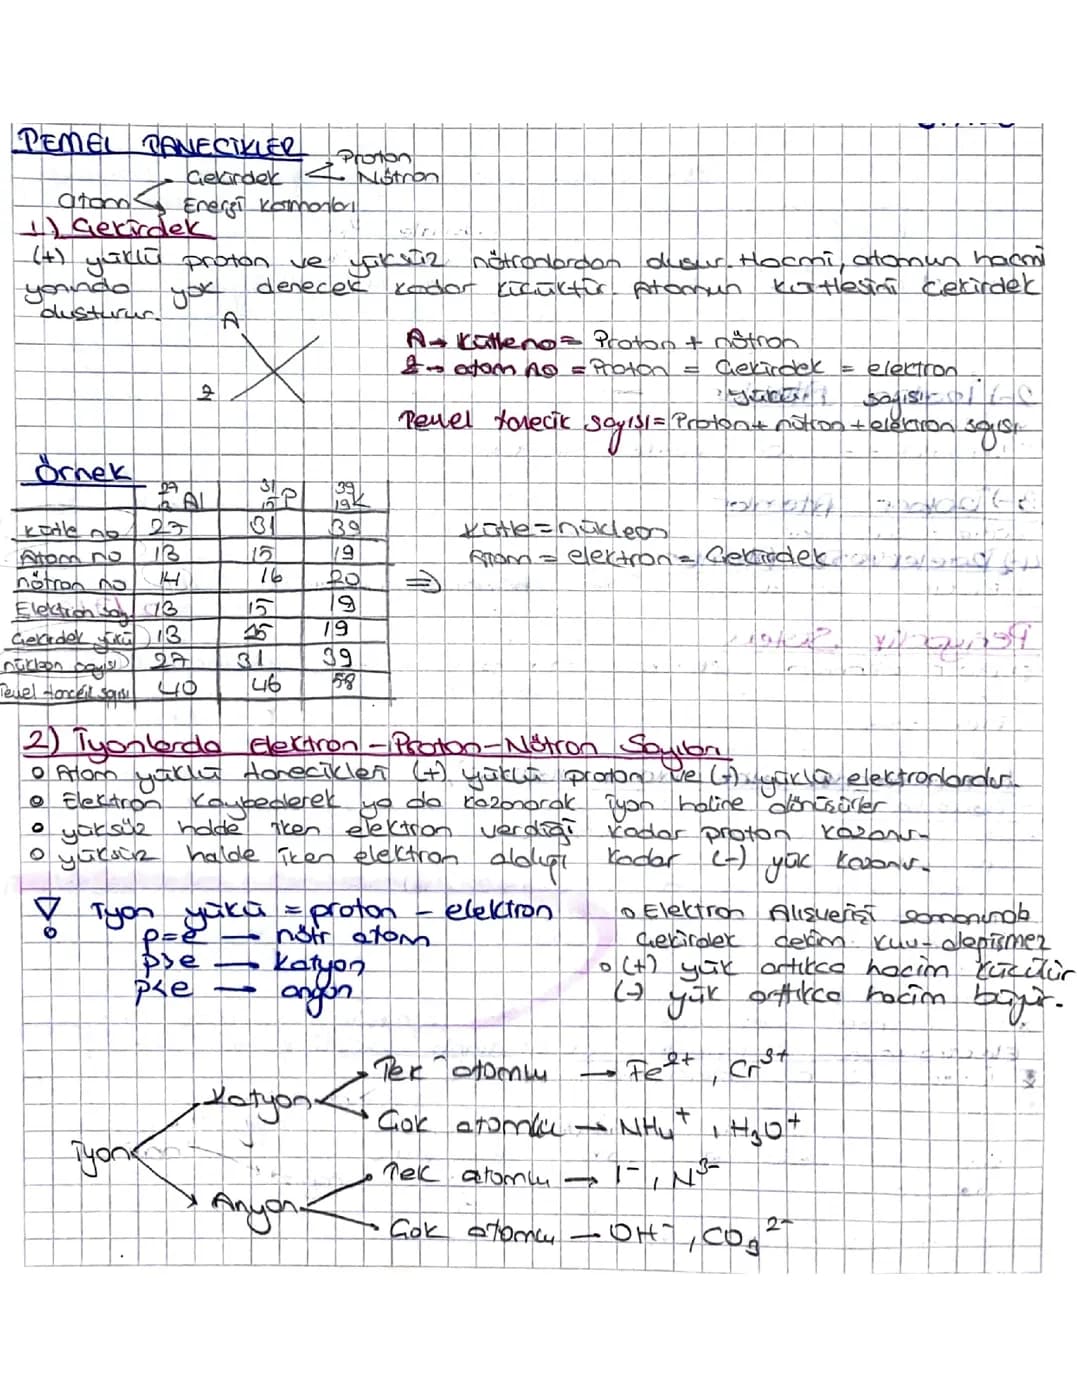 TEMEL TANECİKLER
Proton
Çekirdek
Nötron
atom
Enerji katmanları
1) Çekirdek
(+) yüklü proton ve yüksüz nötronlardan oluşur. Hacmi, atomun hacmi
yanında yok denecek kadar küçüktür. Atomun kütlesini çekirdek
oluşturur.
A
X
Z
A → kütle no = Proton + nötron
Z → atom no = Proton = Çekirdek = elektron
yükü sayısı
Temel tanecik sayısı = Proton + nötron + elektron sayısı
Örnek
27 13 Al 31 15 P 39 19 K
Kütle no 27 31 39
Atom no 13 15 19
nötron no 14 16 20
Elektron say. 13 15 19
Çekirdek yükü 13 15 19
nükleon sayısı 27 31 39
Temel tanecik sayısı 40 46 58
Kütle = nükleon
Atom = elektron = Çekirdek
⇒
2) İyonlarda Elektron - Proton - Nötron Sayıları
o Atom yüklü tanecikleri (+) yüklü proton ve (-) yüklü elektronlardır.
o Elektron kaybederek ya da kazanarak iyon haline dönüşürler
o yüksüz halde iken elektron verdiği kadar proton kazanır.
o yüksüz halde iken elektron aldığı kadar (-) yük kazanır.
İyon yükü = proton - elektron
p=e → nötr atom
p>e → katyon
p<e → anyon
o Elektron Alışverişi
Çekirdek değişmez
o (+) yük arttıkca hacim küçülür
(-) yük arttıkca hacim büyür.
İyon
Katyon
Tek atomlu → Fe²⁺, Cr³⁺
Çok atomlu → NH₄⁺, H₃O⁺
Anyon
Tek atomlu → I⁻, N³⁻
Çok atomlu → OH⁻, CO₃²⁻